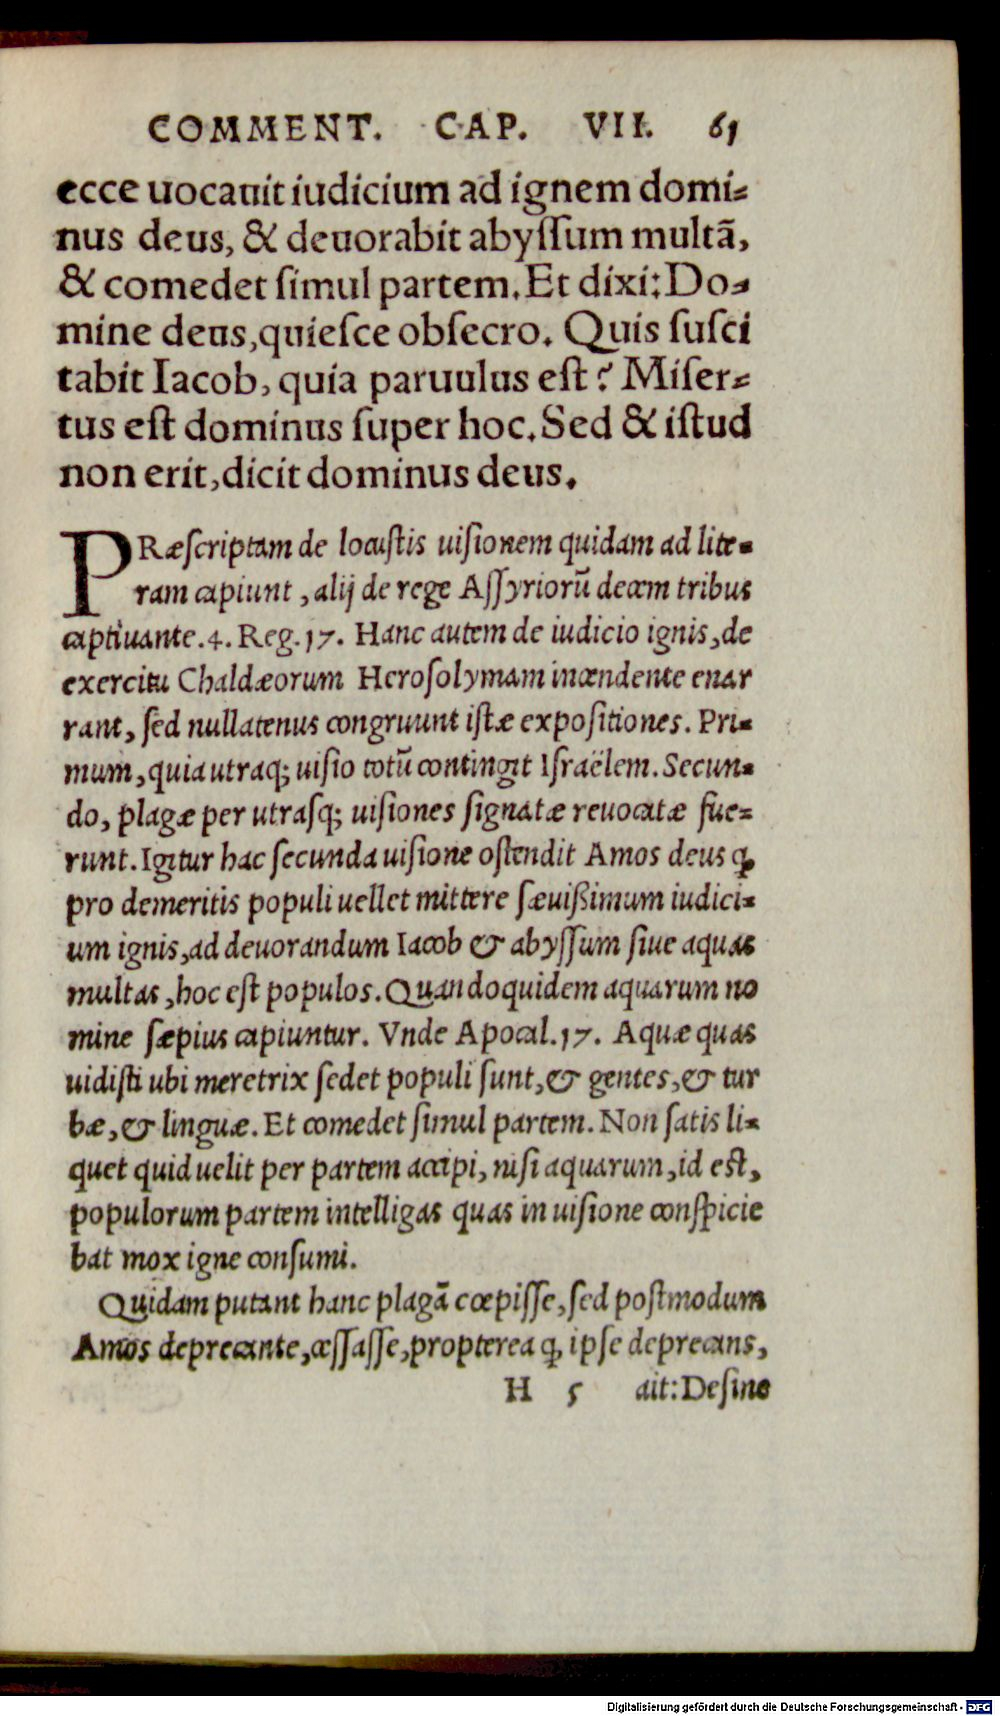 COMMENT. CAP. VII. 61
ecce uocauit iudicium ad ignem domi-
nus deus, & deuorabit abyſſum multã,
& comedet ſimul partem. Et dixi: Do-
mine deus, quieſce obſecro. Quis ſuſci
tabit Iacob, quia paruulus eſt? Miſer-
tus eſt dominus ſuper hoc. Sed & iſtud
non erit, dicit dominus deus.
PRæſcriptam de locuſtis uiſionem quidam ad lite-
ram capiunt, alij de rege Aſſyriorũ decem tribus
captiuante. 4. Reg. 17. Hanc autem de iudicio ignis, de
exercitu Chaldæorum Heroſolymam incendente enar
rant, ſed nullatenus congruunt iſtæ expoſitiones. Pri-
mum, quia utraq; uiſio totũ contingit Iſraëlem. Secun-
do, plagæ per utraſq; uiſiones ſignatæ reuocatæ fue-
runt. Igitur hac ſecunda uiſione oſtendit Amos deus ꝙ
pro demeritis populi uellet mittere ſæuißimum iudici-
um ignis, ad deuorandum Iacob & abyſſum ſiue aquas
multas, hoc eſt populos. Quandoquidem aquarum no
mine ſæpius capiuntur. Vnde Apocal. 17. Aquæ quas
uidiſti ubi meretrix ſedet populi ſunt, & gentes, & tur
bæ, & linguæ. Et comedet ſimul partem. Non ſatis li-
quet quid uelit per partem accipi, niſi aquarum, id eſt,
populorum partem intelligas quas in uiſione conſpicie
bat mox igne conſumi.
Quidam putant hanc plagã cœpiſſe, ſed poſtmodum
Amos deprecante, ceſſaſſe, propterea ꝙ ipſe deprecans,
H 5 ait: Deſine
Digitalisierung gefördert durch die Deutsche Forschungsgemeinschaft - DFG